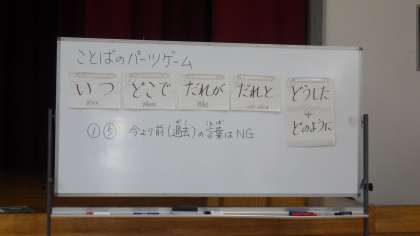 ことばのパーツゲーム
いつ どこで だれが だれと どうした
When Where Who with whom
+
どのように
①⑤ 今より前(過去)の言葉はNG
かこ ことば